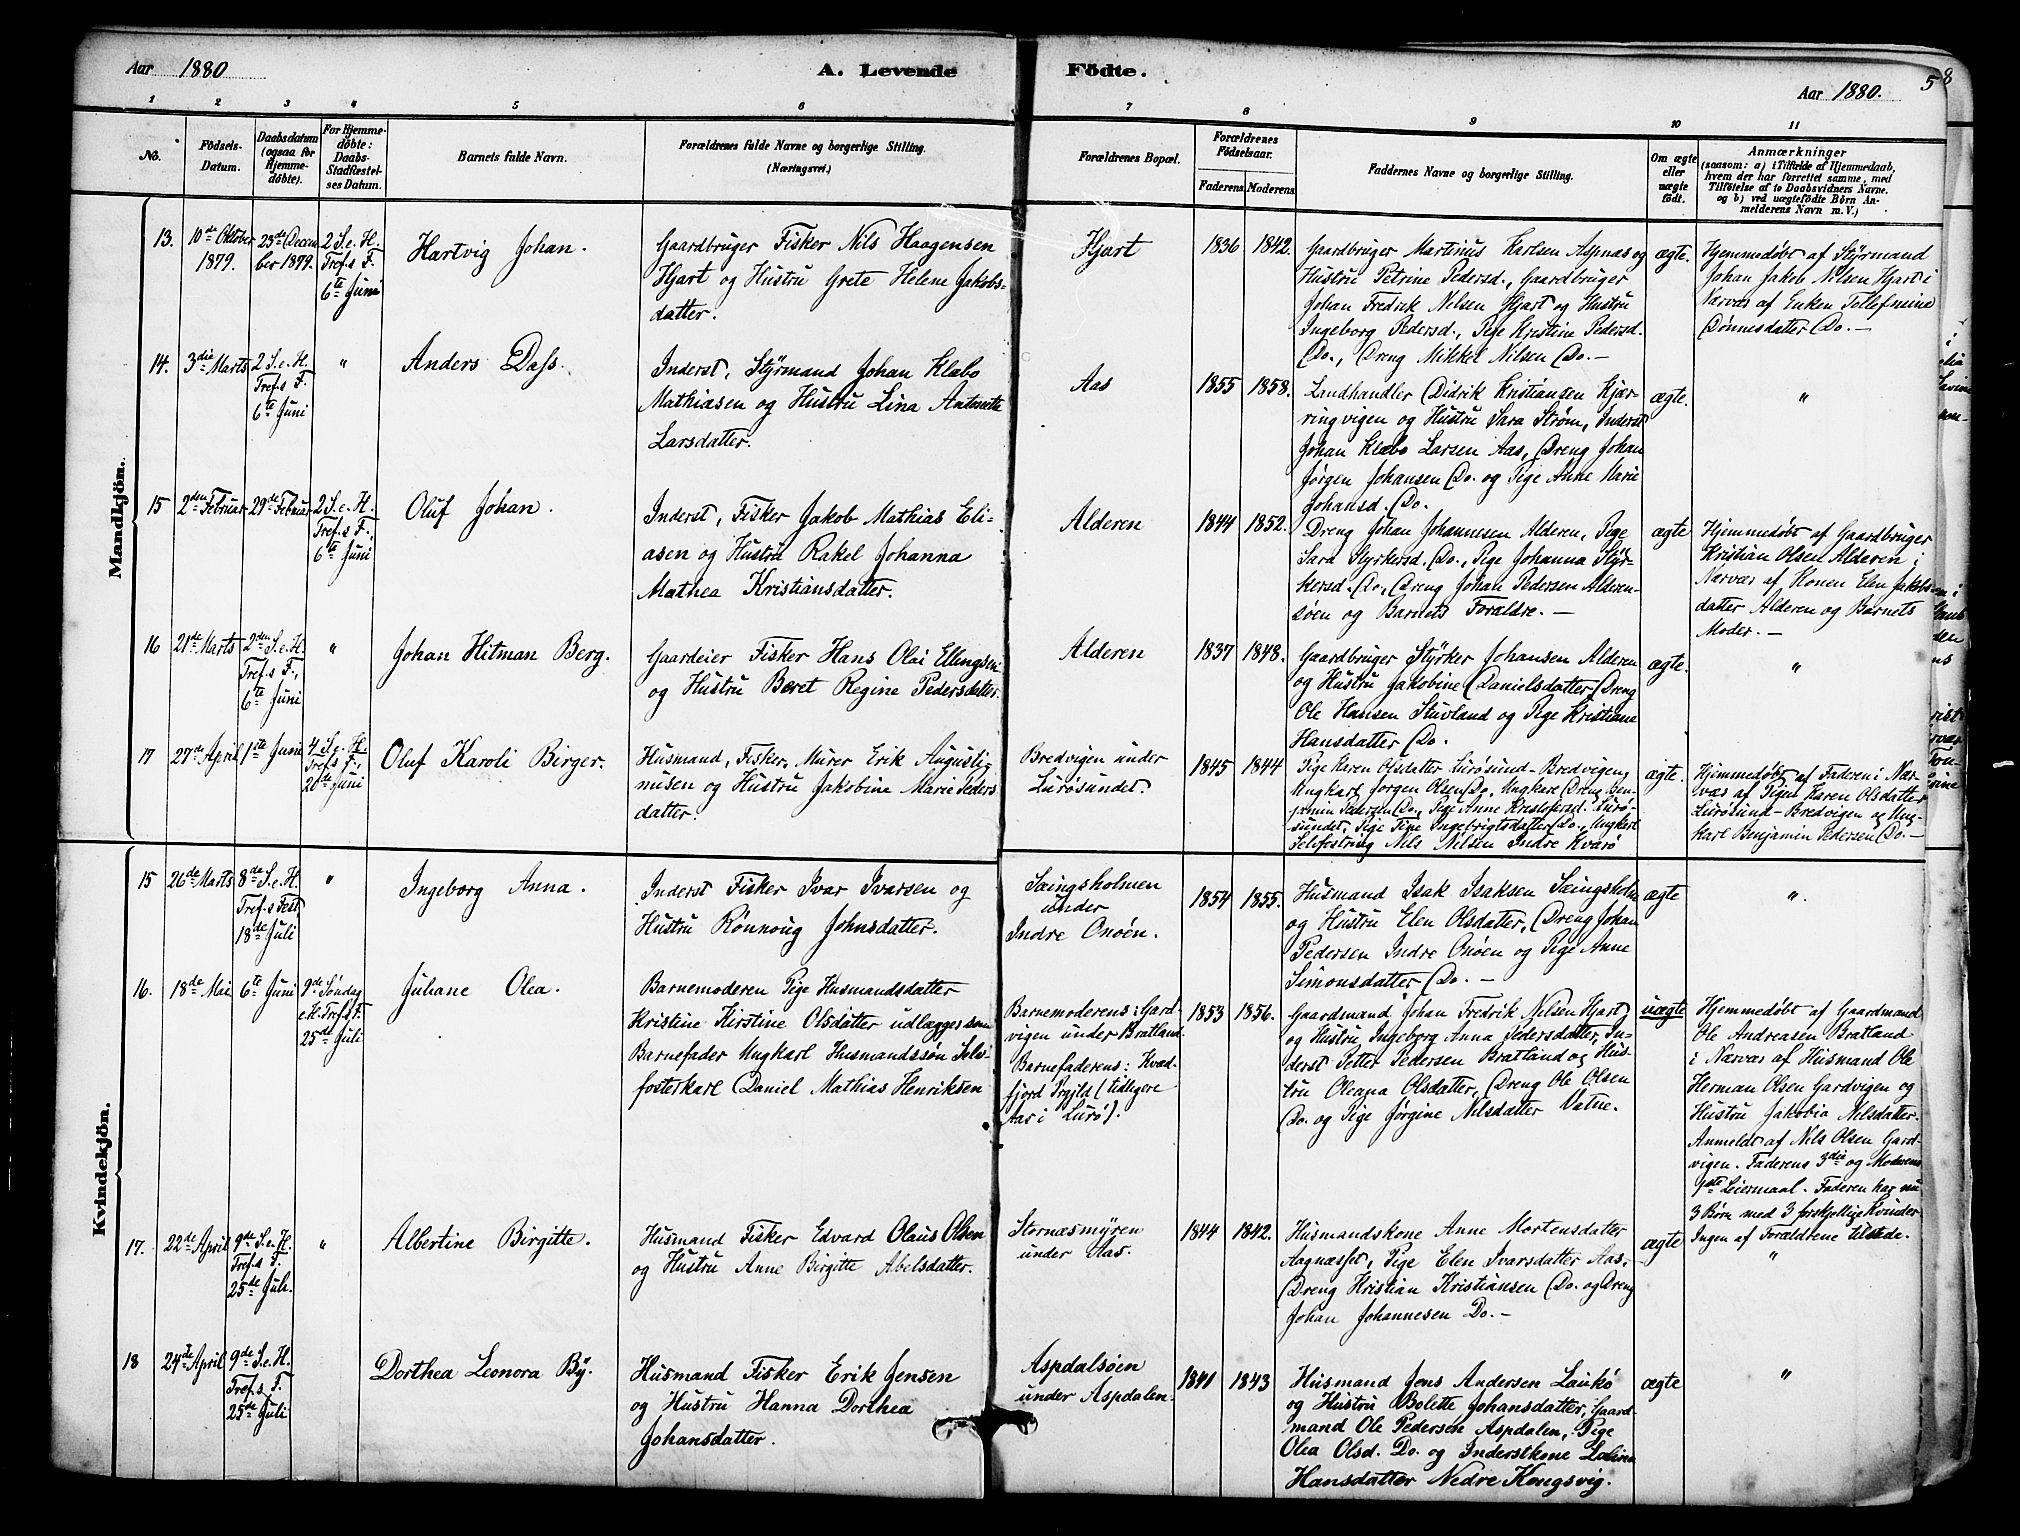 Aar 1880
A. Levende
Födte.
Aar 1880.
5
8
1
2
3
4
5
6
7
8
9
10
11
No.
Födsels-
Datum.
Daabsdatum
(ogsaa for
Hjemme-
döbte).
For Hjemme-
döbte:
Daabs-
Stadfæstel-
ses Datum.
Barnets fulde Navn.
Forældrenes fulde Navne og borgerlige Stilling.
(Næringsvei.)
Forældrenes Bopæl.
Forældrenes
Födselsaar.
Faderens.
Moderens.
Faddernes Navne og borgerlige Stilling.
Om ægte
eller
uægte
födt.
Anmærkninger
(saasom: a) i Tilfælde af Hjemmedaab,
hvem der har forrettet samme, med
Tilföielse af to Daabsvidners Navne.
og b) ved uægtefödte Börn An-
melderens Navn m. V.)
Mandkjön.
13.
10de Oktober
1879.
23de Decem
ber 1879.
2 S. e. H.
Tref.s F.
6te Juni
Hartvig Johan.
Gaardbruger Fisker Nils Haagensen
Hjart og Hustru Grete Helene Jakobs=
datter.
Hjart
1836
1842.
Gaardbruger Martinus Karlsen Aspnas og
Hustru Petrine Pedersd., Gaardbruger
Johan Fredrik Nilsen Hjart og Hustru
Ingeborg Pedersd., Pige Kristine Pedersd.
Do., Dreng Mikkel Nilsen Do. -
ægte.
Hjemmedøbt af Styrmand
Johan Jakob Nilsen Hjart i
Nærvær af Enken Tollefmine
Dønnesdatter Do. -
14.
3die Marts
2 S. e. H.
Tref.s F.
6te Juni
"
Anders Dass.
Inderst, Styrmand Johan Klæbo
Mathiasen og Hustru Lina Antonette
Larsdatter.
Aas
1855
1858.
Landhandler Didrik Kristiansen Kjær-
ringvigen og Hustru Sara Strøm, Inderst
Johan Klæbo Larsen Aas, Dreng Johan
Jørgen Johansen Do. og Pige Anne Marie
Johansd. Do.
ægte.
"
15
2den Februar
29de Februar
2 S. e. H.
Tref.s F.,
6te Juni
Oluf Johan.
Inderst, Fisker Jakob Mathias Eli-
asen og Hustru Rakel Johanna
Mathea Kristiansdatter.
Alderen
1844
1852.
Dreng Johan Johannesen Alderen, Pige
Sara Styrkersd. Do., Pige Johanna Styr-
kersd. Do., Dreng Johan Pedersen Alderen-
søen og Barnets Forældre. -
ægte
Hjemmedøbt af Gaardbruger
Kristian Olsen Alderen i
Nærvær af Konen Elen Jakobs
datter Alderen og Barnets
Moder. -
16
21de Marts
2den S. e. H.
Tref.s F.,
6te Juni
"
Johan Hitman Berg.
Gaardeier Fisker Hans Olai Ellingsen
og Hustru Beret Regine Pedersdatter.
Alderen
1837
1848.
Gaardbruger Styrker Johansen Alderen
og Hustru Jakobine Danielsdatter, Dreng
Ole Hansen Stuvland og Pige Kristiane
Hansdatter Do.
ægte.
"
17
27de April
1ste Juni
4 S. e. H.
Tref.s F.,
20de Juni
Oluf Karoli Birger.
Husmand, Fisker, Murer Erik Augusti-
nusen og Hustru Jakobine Marie Peders
datter.
Bredvigen under
Lurøsundet.
1845
1844
Pige Karen Olsdatter Lurøsund-Bredvigen,
Ungkarl Jørgen Olsen Do., Ungkarl Dreng Ben-
jamin Pedersen Do., Pige Anne Kristofersd. Lurø-
sundet, Pige Tine Ingebrigtsdatter Do., Ungkarl
Selvfostring Nils Nilsen Indre Kvarø
ægte.
Hjemmedøbt af Faderen i Nær-
vær af Pigen Karen Olsdatter
Lurøsund-Bredvigen og Ung-
karl Benjamin Pedersen Do. -
Kvindekjön.
15
26de Marts
8de S. e. H.
Tref.s Fest
18de Juli
"
Ingeborg Anna.
Inderst Fisker Ivar Ivarsen og
Hustru Rønnoug Johnsdatter.
Sæingsholmen
under
Indre Onøen.
1854
1855.
Husmand Isak Isaksen Sæingsholm
og Hustru Elen Olsdatter, Dreng Johan
Pedersen Indre Onøen og Pige Anne
Simonsdatter Do. -
ægte
"
16.
18de Mai
6te Juni
9de Søndag
e. H. Tref.s F.
25de Juli
Juliane Olea.
Barnemoderen Pige Husmandsdatter
Kristine Kirstine Olsdatter udlægger som
Barnefader Ungkarl Husmandssøn Selv-
fosterkarl Daniel Mathias Henriksen
Barnemoderens: Gard-
vigen under Bratland.
Barnefaderens: Kvæd-
fjord Prgjld (tidligere
Aas i Lurø).
1853
1856.
Gaardmand Johan Fredrik Nilsen Hjart
og Hustru Ingeborg Anna Pedersdatter, In-
derst Petter Pedersen Bratland og Hus-
tru Oleana Olsdatter, Dreng Ole Olsen
Do. og Pige Jørgine Nilsdatter Vatne.
uægte
Hjemmedøbt af Gaardmand
Ole Andreasen Bratland
i Nærvær af Husmand Ole
Herman Olsen Gardvigen og
Hustru Jakobia Nilsdatter.
Anmeldt af Nils Olsen Gard-
vigen. Faderens 3die og Moderens
1ste Leiermaal. Faderen har nu
3 Børn med 3 forskjellige Kvinder
Ingen af Forældrene tilstede.
17.
22de April
9de S. e. H.
Tref.s F.
25de Juli.
"
Albertine Birgitte.
Husmand Fisker Edvard Olaus Olsen
og Hustru Anne Birgitte Abelsdatter.
Stornæsmyren
under Aas.
1844
1842.
Husmandskone Anne Mortensdatter
Aagnæsset, Pige Elen Ivarsdatter Aas,
Dreng Kristian Kristiansen Do. og Dreng
Johan Johannesen Do. -
ægte
"
18
24de April
9de S. e. H.
Tref.s F.
25de Juli
Dorthea Leonora By.
Husmand Fisker Erik Jensen
og Hustru Hanna Dorthea
Johansdatter.
Aspdalsøen
under Aspdalen.
1841
1843
Husmand Jens Andersen Laukø
og Hustru Bolette Johansdatter, Gaard-
mand Ole Pedersen Aspdalen, Pige
Olea Olsd. Do. og Inderstkone Lovina
Hansdatter Nedre Kongsvig.
ægte
"